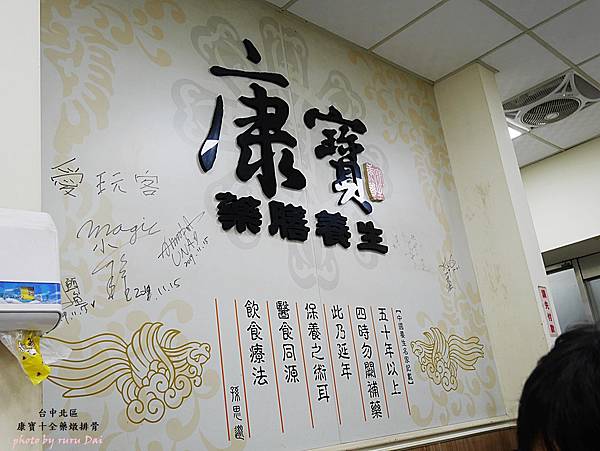 康寶
藥膳養生
愛玩客
magic
2019.11.15
2019.11.15
五十年以上
四時勿闕補藥
此乃延年
保養之術耳
醫食同源
飲食療法
孫思邈
台中北區
康寶十全藥燉排骨
photo by ruru Dai